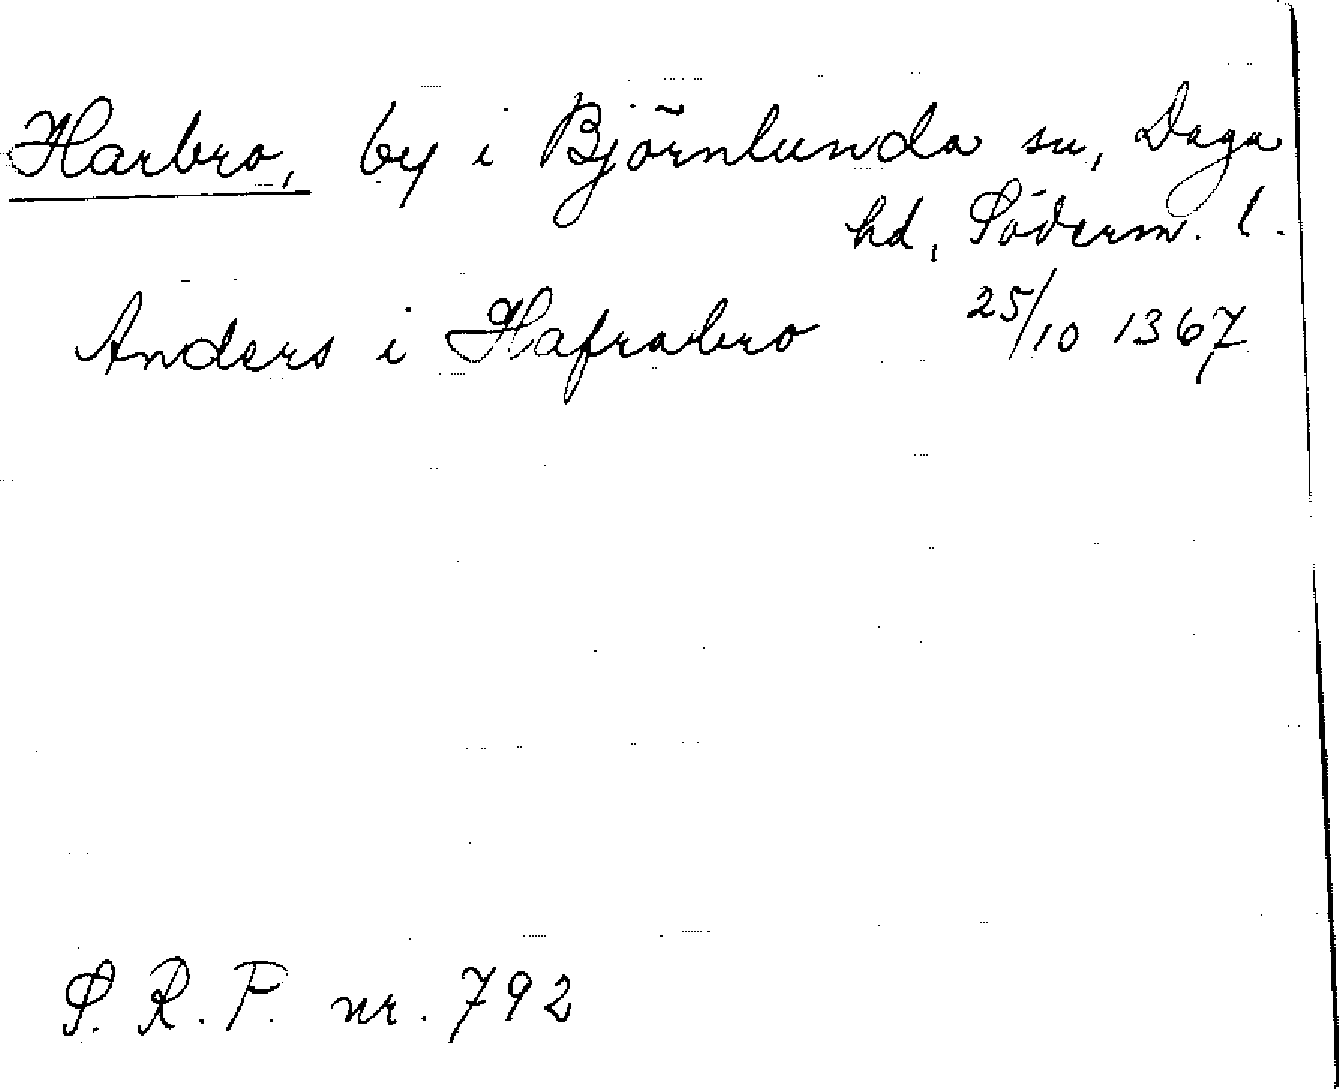 Harbro, by i Björnlunda sn, Daga
hd, Söderm. l.
Anders i Hafrabro 25/10 1367
S. R. P. nr. 792